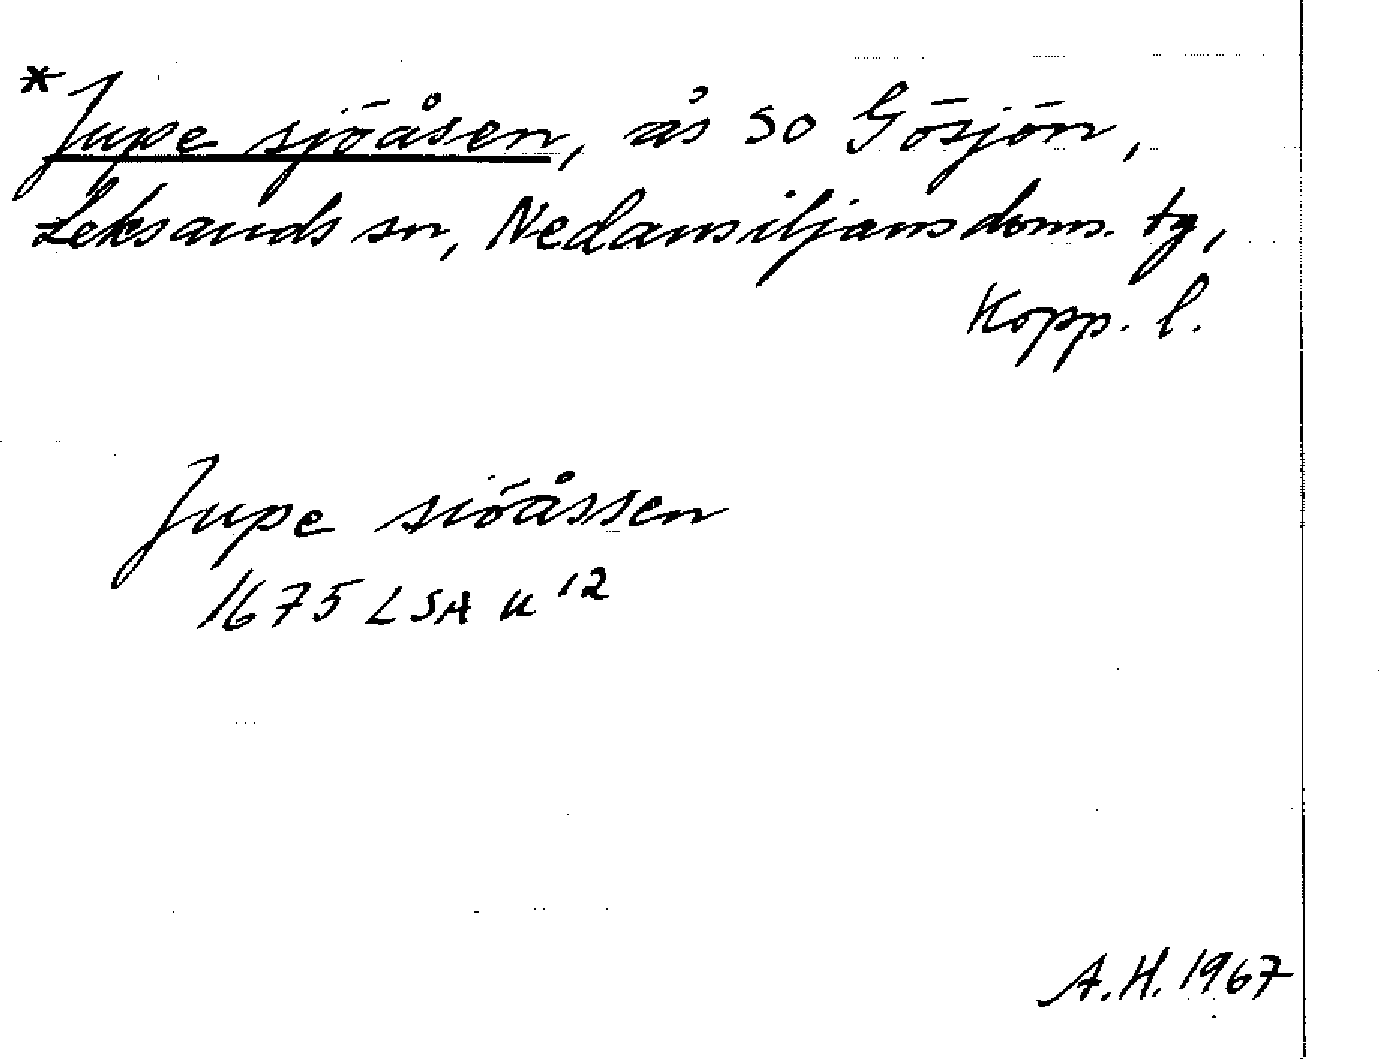 *Jupe sjöåsen, ås SO Gösjön,
Leksands sn, Nedansiljans doms. tg,
Kopp. l.
Jupe siöåssen
1675 LSA U 12
A.H. 1967